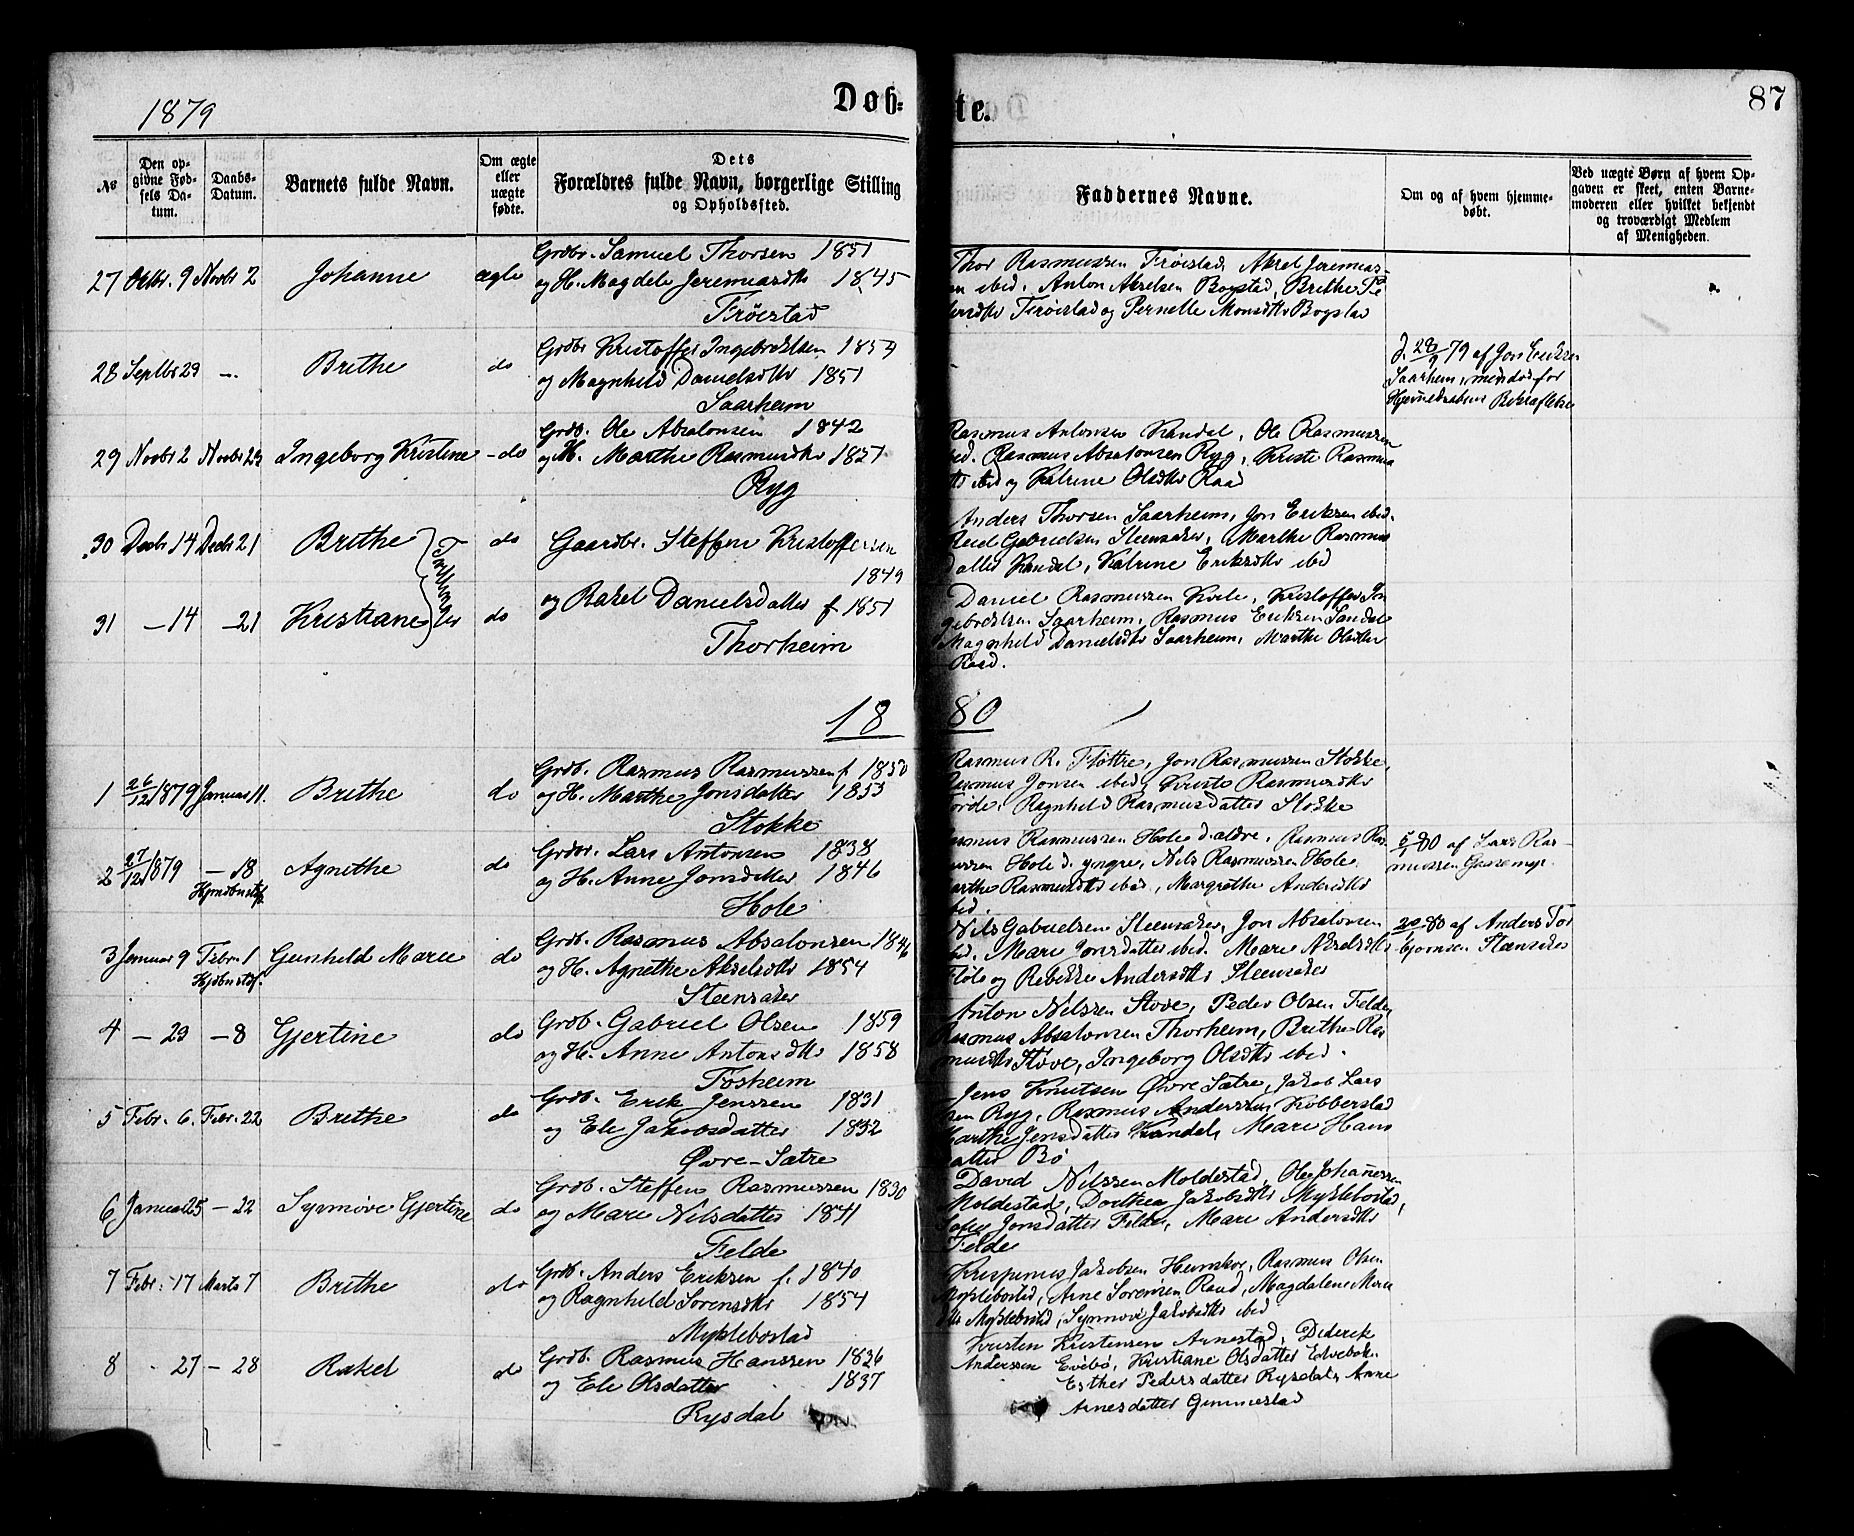 1879
Døb-
te.
87
No
Den opgivne Fødsels Datum.
Daabs-Datum.
Barnets fulde Navn.
Om ægte eller uægte fødte.
Dets Forældres fulde Navn, borgerlige Stilling og Opholdssted.
Faddernes Navne.
Om og af hvem hjemmedøbt.
Ved uægte Børn af hvem Opgaven er skeet, enten Barnemoderen eller hvilket bekjendt og troværdigt Medlem af Menigheden.
27 Oktbr. 9 Novbr 2 Johanne ægte
Grdbr. Samuel Thorsen 1851
og H. Magdele Jeremiasdtr 1845
Frøistad
Thor Rasmussen Frøistad, Aksel Jeremias-
en ibid, Anton Akselsen Bogstad, Brithe Pe
dersdtr Frøistad og Pernelle Monsdtr Bogstad
28 Septbr 29 — Brithe do
Grdbr Kristoffer Ingebrektsen 1854
og Magnhild Danielsdtr 1851
Saarheim
d. 28/9 79 af Jon Eriksen
Saarheim, men død før
Bekræftelse
29 Novbr 2 Novbr 23 Ingeborg Kristine do
Grdb. Ole Absalonsen 1842
og H. Marthe Rasmusdtr 1851
Ryg
Rasmus Antonsen Kandal, Ole Rasmussen
ibid. Rasmus Absalonsen Ryg, Kriste Rasmus
dtr ibid og Katrine Olsdtr Raad
30 Decbr 14 Decbr 21 Brithe do
Tvillinger
Gaardbr. Steffen Kristoffersen
1849
Anders Thorsen Saarheim, Jon Eriksen ibid.
Gabrielsen Steensaker, Marthe Rasmus
datter Kandal, Katrine Eriksdtr ibid
31 — 14 — 21 Kristiane do
og Rakel Danielsdatter f. 1851
Thorheim
Daniel Rasmussen Kvile, Kristoffer In
gebrektsen Saarheim, Rasmus Eriksen Sandal
Magnhild Danielsdtr Saarheim, Marthe Olsdtr
Raad.
1880
1 26/12 1879 Januar 11. Brithe do
Grdb. Rasmus Rasmussen f. 1850
og H. Marthe Jonsdatter 1853
Stokke
Rasmus R. Fløttre, Jon Rasmussen Stokke,
Rasmus Jonsen ibid, Kriste Rasmusdtr
Førde, Ragnhild Rasmusdatter Stokke
2 27/12 1879 — 18 Agnethe do
Hjmdbstf.
Grdbr. Lars Antonsen 1838
og H. Anne Jonsdatter 1846
Hole
Rasmus Rasmussen Hole d. ældre, Rasmus Ras
mussen Hole d. yngre, Nils Rasmussen Hole
Marthe Rasmusdtr ibid, Margrethe Andersdtr
ibid.
5/1 80 af Lars Ras-
mussen Gaasemyr
3 Januar 9 Febr. 1 Gunhild Marie do
Hjdbstf.
Grdb. Rasmus Absalonsen 1846
og H. Agnethe Akselsdtr 1854
Steensaker
Nils Gabrielsen Steensaker, Jon Absalonsen
ibid. Mari Jonsdatter ibid. Marie Akselsdtr
Fløte og Rebekke Andersdtr Steensaker
80 af Anders Tor
bjørnsen Steensaker
4 — 29 — 8 Gjertine do
Grdb. Gabriel Olsen 1859
og H. Anne Antonsdtr 1858
Tosheim
Anton Nilssen Støve, Peder Olsen Felde,
Rasmus Absalonsen Thorheim, Brithe Ras
musdtr Støve, Ingeborg Olsdtr ibid.
5 Febr. 6. Febr. 22 Brithe do
Grdb. Erik Jenssen 1831
og Eli Jakobsdatter 1832
Øvre-Sætre
Jens Knutsen Øvre Sætre, Jakob Lars
sen Ryg, Rasmus Anderssen Kobberstad
Marthe Jensdatter Kandal, Mari Hans
datter Bø
6 Januar 25 — 22 Synnøve Gjertine do
Grdb. Steffen Rasmussen 1830
og Mari Nilsdatter 1841
Felde
David Nilssen Moldestad, Ole Johannessen
Moldestad, Dorthea Jakobsdtr Myklebostad,
Sofie Jonsdatter Felde, Mari Andersdtr
Felde
7 Febr. 17 Marts 7 Brithe do
Grdb. Anders Eriksen f. 1840
og Ragnhild Sørensdtr 1854
Myklebostad
Krispinus Jakobsen Heimskor, Rasmus Olsen
Myklebostad, Arne Sørensen Raad, Magdalene Mon
dtr Myklebostad, Synnøve Jakobsdtr ibid
8 - 27 — 28 Rakel do
Grdb. Rasmus Hanssen 1836
og Eli Olsdatter 1837
Rysdal
Kristen Kristensen Arnestad, Diderik
Anderssen Evebø, Kristiane Olsdatter Edvebak.
Esther Pedersdatter Rysdal, Anne
Arnesdatter Gimmestad